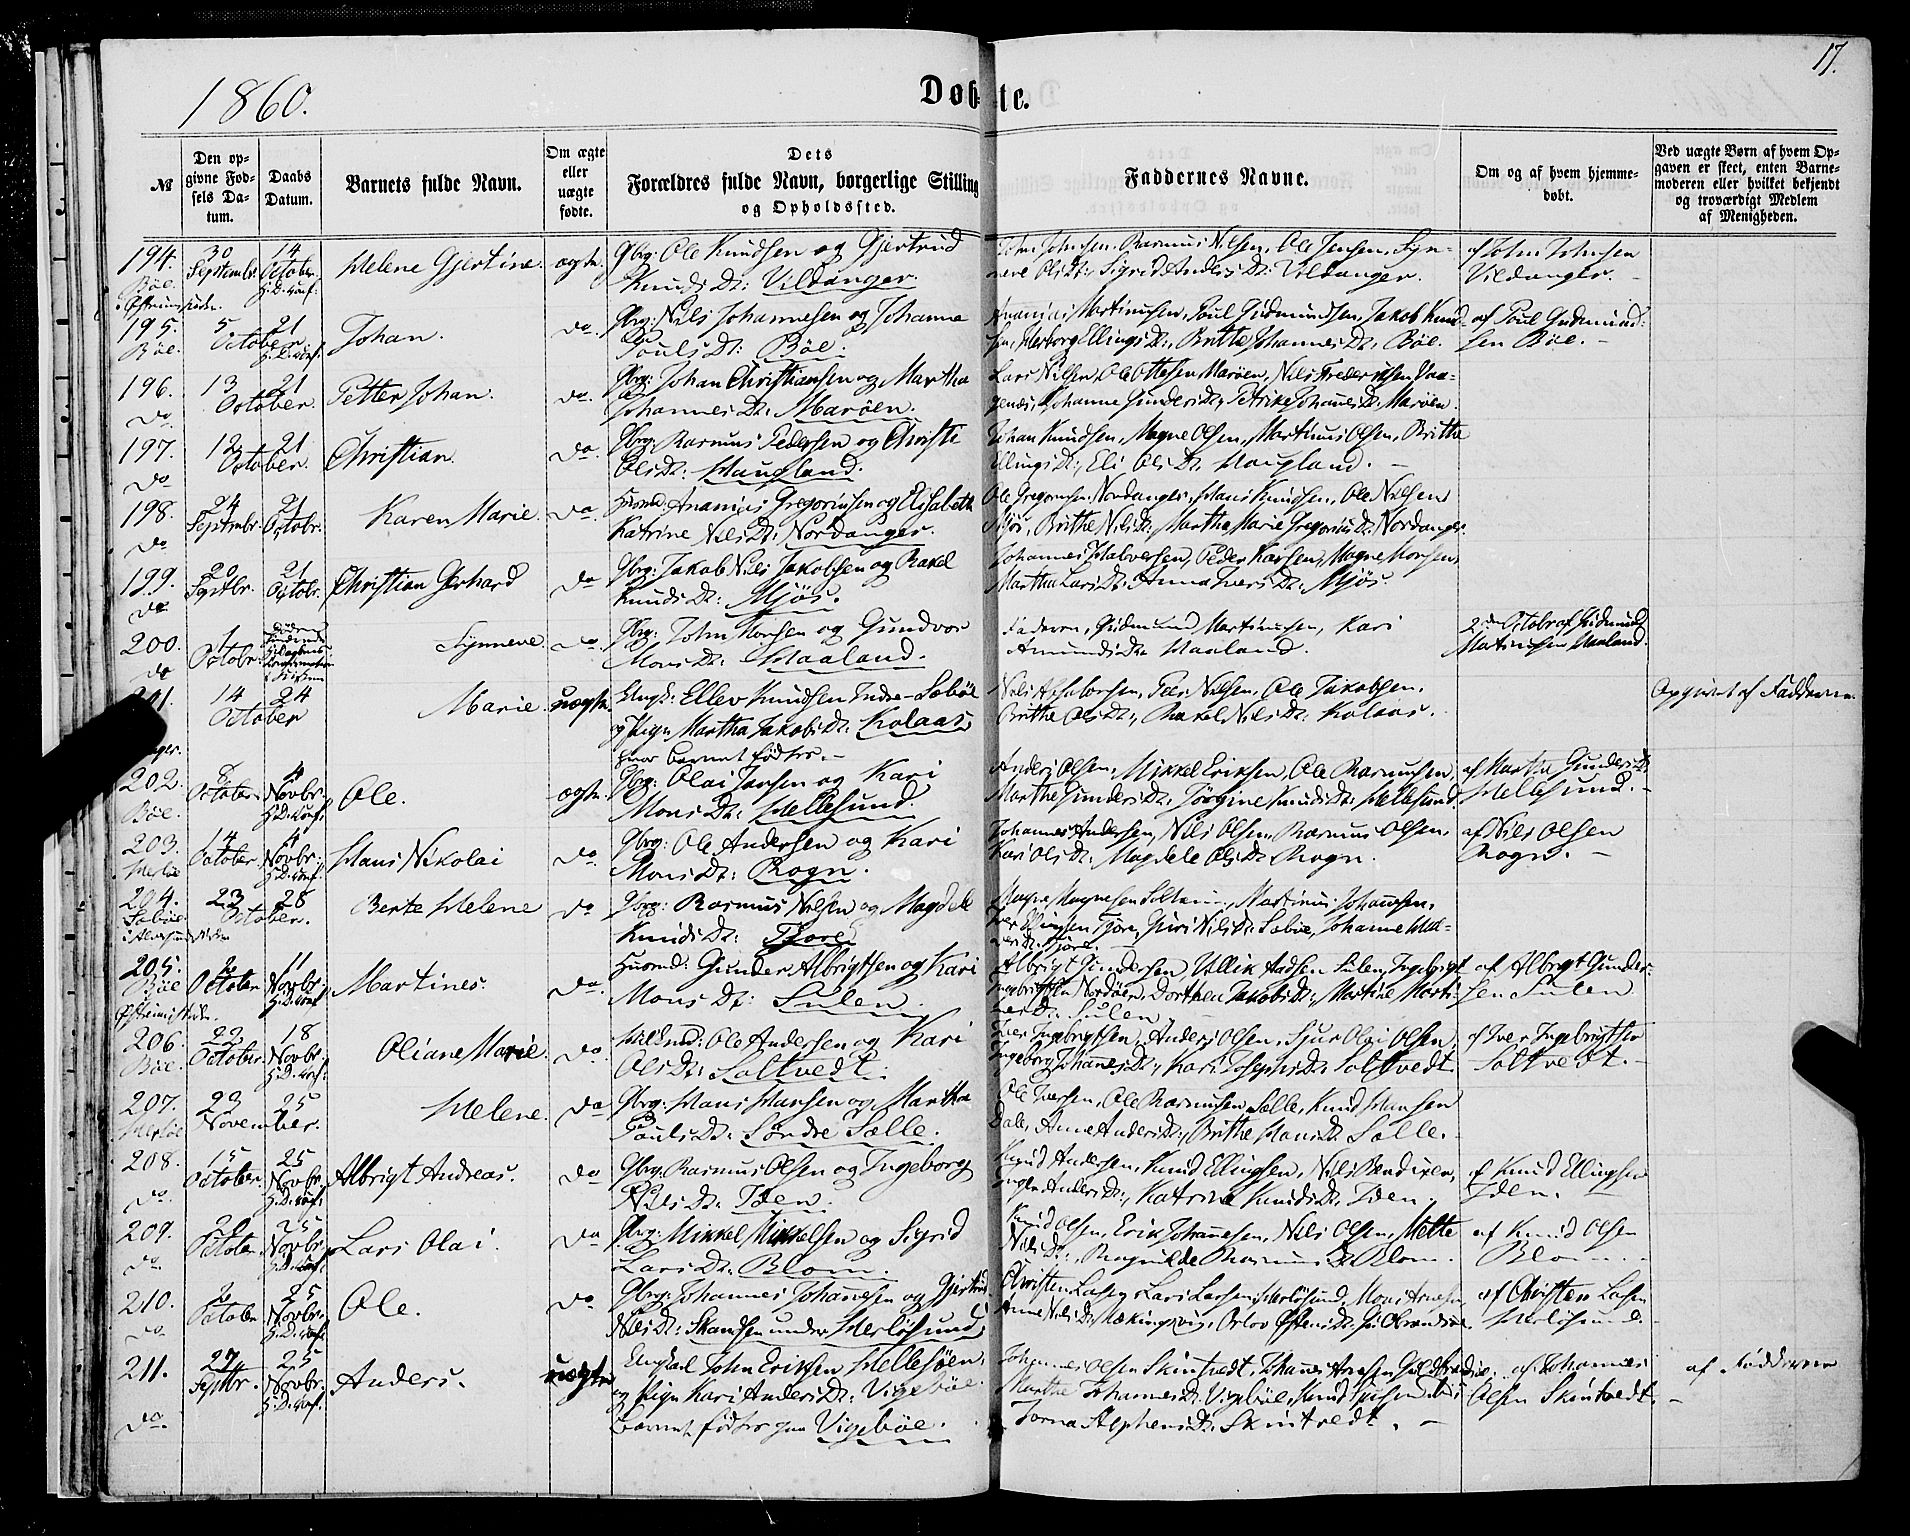 17.
1860.
Døbte.
№
Den opgivne Fødsels Datum.
Daabs Datum.
Barnets fulde Navn.
Om ægte eller uægte fødte.
Dets Forældres fulde Navn, borgerlige Stilling og Opholdssted.
Faddernes Navne.
Om og af hvem hjemmedøbt.
Ved uægte Børn af hvem Opgaven er skeet, enten Barnemoderen eller hvilket bekjendt og troværdigt Medlem af Menigheden.
194. Bøe. 30 Septembr. 14 October. Helene Gjertine. ægte. Gbrg: Ole Knudsen og Gjertrud
Knuds Dt: Vildanger.
John Johnsen, Rasmus Nilsen, Ole Jensen, Syn-
neve Ols Dt: Sigrid Anders Dt: Vildanger.
af John Johnsen
Vildanger. -
195. Bøe. 5 21 October. Johan. do. Gbrg: Nils Johannesen og Johanna
Pouls Dt: Bøe.
Martinusen, Poul Gudmundsen, Jakob Knud-
sen, Herborg Ellings Dt:, Brithe Johannes Dt: Bøe.
af Poul Gudmund-
sen Bøe. -
196. do 13 21 October. Petter Johan. do. Gbrg: Johan Christiansen og Martha
Johannes Dt: Marøen.
Lars Nilsen, Ole Ottesen Marøen, Nils Fredriksen
Johanne Gunders Dt: Marøen.
197. do 12 21 October. Christian. do. Gbrg: Rasmus Pedersen og Christi
Ols Dt: Haugland.
Johan Knudsen, Magne Olsen, Martinus Olsen, Brithe
Ellings Dt:, Eli Ols Dt: Haugland. -
198. do 24 Septembr. 21 Octobr. Karen Marie. do. Husmd: Ananias Gregoriusen og Elisabeth
Katrine Nils Dt: Nordanger.
Ole Gregoriusen Nordanger, Hans Knudsen, Ole Nilsen
Mjøs, Brithe Nils Dt:, Martha Marie Gregorius Dt: Nordanger
199. do 20 Septbr. 21 Octobr. Christian Gerhard do Gbrg: Jakob Nils Jakobsen og Rakel
Knuds Dt: Mjøs.
Johannes Halvorsen, Peder Magne Monsen,
Martha Lars Dt: Anna Ivers Dt: Mjøs
200. do 1 Octobr. Synneve do. Gbrg: John Monsen og Gundvor
Mons Dt: Haaland.
Faderen, Gudmund Martinusen, Kari
Amunds Dt: Haaland.
2den Octobr af Gudmund
Martinusen Haaland.
14 24 October Marie. uægte. Ungk: Ellev Knudsen Indre-Sæbøe
og Pige Martha Jakobs Dt: Kolaas
hvor Barnet fødtes. -
Nils Peder Nilsen, Ole Jakobsen,
Brithe Ols Dt:, Rakel Nils Dt: Kolaas.
Opgivet af Fadderne.
202. Bøe. 8 October 4 Novbr. Ole. ægte. Gbrg: Olai Jensen og Kari
Mons Dt: Hellesund.
Anders Olsen, Mikkel Eriksen, Ole Rasmusen,
Marthe Gunders Dt: Jørgine Knuds Dt: Hellesund.
af Marthe Gunders Dt
Hellesund. -
203. Herløe 14 October 4 Novbr. Hans Nikolai do Gbrg: Ole Andersen og Kari
Mons Dt: Rogn.
Johannes Andersen, Nils Olsen, Rasmus Olsen,
Kari Ols Dt: Magdele Ols Dt: Rogn.
af Nils Olsen
Rogn. -
204. Sæbøe 23 28 October. Berte Helene do Gbrg: Rasmus Nilsen og Magdele
Knuds Dt: Tjore
Magne Magnesen Martinus Johannesen,
Guri Nils Dt: Sæbøe, Johanne
205. Bøe October 11 Novbr. Martines. do. Husmd: Gunder Albrigtsen og Kari
Mons Dt: Sulen.
Albrigt Gundersen, Sulen,
Nordøen, Dorthea Jakobs Dt:, Martine Marti-
Sulen
af Albrigt Gunder-
sen Sulen
206. Bøe. 22 October. 18 Novbr. Oliane Marie. do. Ole Andersen og Kari
Ols Dt: Saltvedt.
Iver Ingebrigtsen, Anders Olsen, Sjur Olai Olsen,
Ingeborg Johannes Dt:, Kari Josephs Dt: Saltvedt
af Iver Ingebrigtsen
Saltvedt. -
207. Herløe 23 25 November. Helene. do Gbrg: Hans Hansen og Martha
Pouls Dt: Søndre Sælle.
Ole Iversen, Ole Rasmusen Sælle, Knud Hansen
Dale, Anne Anders Dt:, Brithe Hans Dt: Sælle.
208. do. 15 October 25 Novbr. Albrigt Andreas. do Gbrg: Rasmus Olsen og Ingeborg
Nils Dt: Iden.
Knud Andersen, Knud Ellingsen, Nils Bendixen,
Anders Dt:, Katrina Knuds Dt: Iden.
af Knud Ellingsen
Iden.
209. do. October 25 Novbr. Lars Olai. do Gbrg: Mikkel Mikkelsen og Sigrid
Lars Dt: Blom.
Knud Olsen, Erik Johannesen, Nils Olsen, Mette
Nils Dt:, Ragnilde Rasmus Dt Blom.
af Knud Olsen
Blom.
210. do. October 25 Novbr. Ole. do Gbrg: Johannes Johannesen og Gjertrud
Nils Dt: Skandsen under Herløsund
Christen Larsen, Lars Larsen Herløsund, Mons
Anne Nils Dt:
af Christen Larsen
Herløsund.
211. do. 27 Septbr. 25 Novbr. Anders. uægte Ungkarl John Eriksen Hellesøen,
og Pige Kari Anders Dt: Vigebøe.
Barnet fødtes paa Vigebøe.
Johannes Olsen Skintvedt, Johannes
Marthe Johannes Dt: Vigebøe,
Skintvedt. -
af Johannes
Olsen Skintvedt. -
af Fadderne